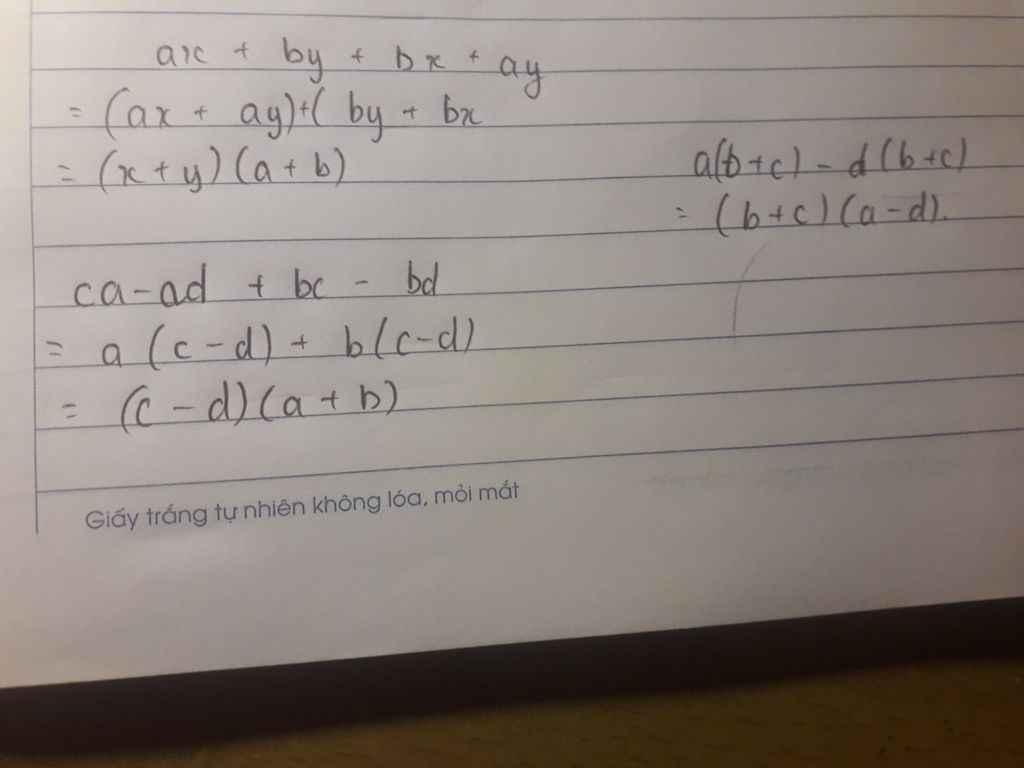 ax + by + bx + ay
= (ax + ay)+( by + bx
= (x+y)(a+b)
a(b+c) - d(b+c)
= (b+c)(a-d).
ca-ad + bc - bd
= a (c-d) + b(c-d)
= (c-d)(a+b)
Giấy trắng tự nhiên không lóa, mỏi mắt